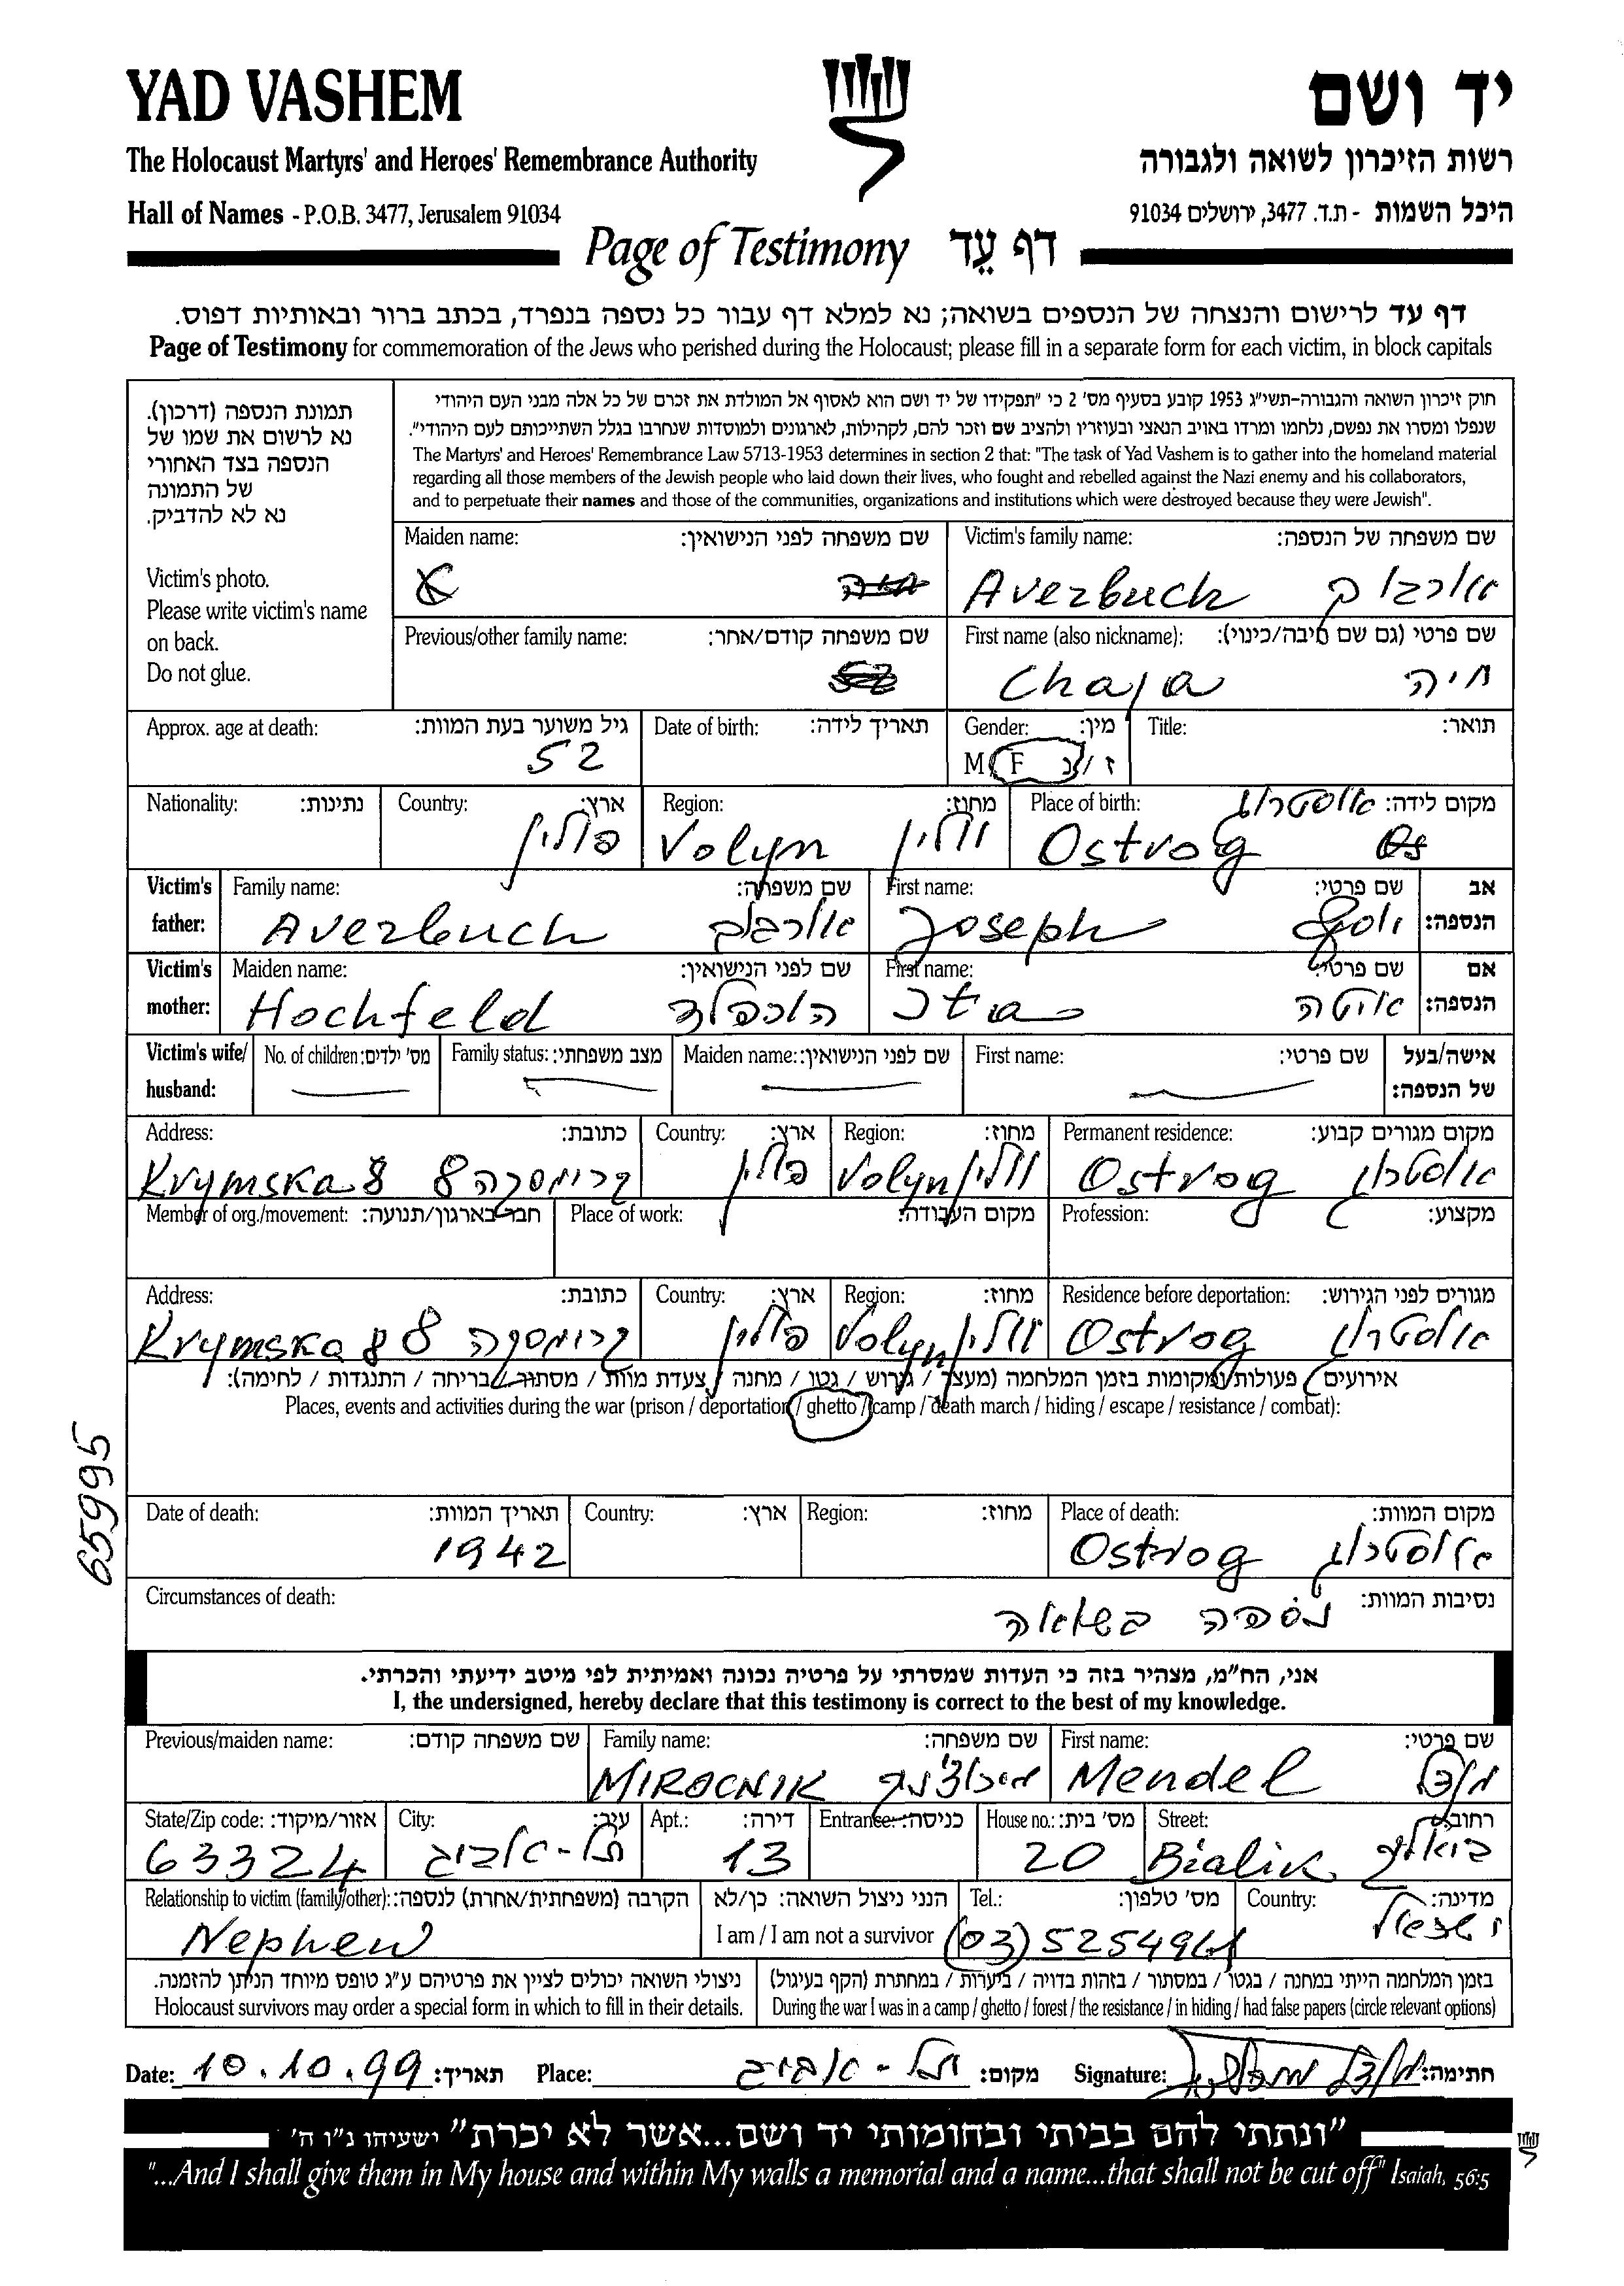 YAD VASHEM יד ושם
The Holocaust Martyrs' and Heroes' Remembrance Authority רשות הזיכרון לשואה ולגבורה
Hall of Names - P.O.B. 3477, Jerusalem 91034 היכל השמות - ת.ד. 3477, ירושלים 91034
Page of Testimony דף עֵד
דף עד לרישום והנצחה של הנספים בשואה; נא למלא דף עבור כל נספה בנפרד, בכתב ברור ובאותיות דפוס.
Page of Testimony for commemoration of the Jews who perished during the Holocaust; please fill in a separate form for each victim, in block capitals
תמונת הנספה (דרכון).
נא לרשום את שמו של
הנספה בצד האחורי
של התמונה
נא לא להדביק.
Victim's photo.
Please write victim's name
on back.
Do not glue.
חוק זיכרון השואה והגבורה-תשי"ג 1953 קובע בסעיף מס' 2 כי "תפקידו של יד ושם הוא לאסוף אל המולדת את זכרם של כל אלה מבני העם היהודי
שנפלו ומסרו את נפשם, נלחמו ומרדו באויב הנאצי ובעוזריו ולהציב שם וזכר להם, לקהילות, לארגונים ולמוסדות שנחרבו בגלל השתייכותם לעם היהודי".
The Martyrs' and Heroes' Remembrance Law 5713-1953 determines in section 2 that: "The task of Yad Vashem is to gather into the homeland material
regarding all those members of the Jewish people who laid down their lives, who fought and rebelled against the Nazi enemy and his collaborators,
and to perpetuate their names and those of the communities, organizations and institutions which were destroyed because they were Jewish".
Maiden name: שם משפחה לפני הנישואין: Victim's family name: שם משפחה של הנספה:
Averbuch אורבוך
Previous/other family name: שם משפחה קודם/אחר: First name (also nickname): שם פרטי (גם שם חיבה/כינוי):
Chaja חיה
Approx. age at death: גיל משוער בעת המוות: Date of birth: תאריך לידה: Gender: מין: Title: תואר:
52 M F ז/נ
Nationality: נתינות: Country: ארץ: Region: מחוז: Place of birth: מקום לידה: אוסטרוג
פולין Volyn וולין Ostrog
Victim's father: Family name: שם משפחה: First name: שם פרטי: אב הנספה:
Averbuch אורבוך Joseph יוסף
Victim's mother: Maiden name: שם לפני הנישואין: First name: שם פרטי: אם הנספה:
Hochfeld הוכפלד Ita איטה
Victim's wife/ husband: No. of children: מס' ילדים: Family status: מצב משפחתי: Maiden name: שם לפני הנישואין: First name: שם פרטי: אישה/בעל של הנספה:
Address: כתובת: Country: ארץ: Region: מחוז: Permanent residence: מקום מגורים קבוע:
Krymska 8 קרימסקה 8 פולין Volyn וולין Ostrog אוסטרוג
Member of org./movement: חבר בארגון/תנועה: Place of work: מקום העבודה: Profession: מקצוע:
Address: כתובת: Country: ארץ: Region: מחוז: Residence before deportation: מגורים לפני הגירוש:
Krymska 8 8 קרימסקה פולין Volyn וולין Ostrog אוסטרוג
אירועים, פעולות ומקומות בזמן המלחמה (מעצר / גירוש / גטו / מחנה / צעדת מוות / מסתור / בריחה / התנגדות / לחימה):
Places, events and activities during the war (prison / deportation / ghetto / camp / death march / hiding / escape / resistance / combat):
65995
Date of death: תאריך המוות: Country: ארץ: Region: מחוז: Place of death: מקום המוות:
1942 Ostrog אוסטרוג
Circumstances of death: נסיבות המוות:
נספה בשואה
אני, הח"מ, מצהיר בזה כי העדות שמסרתי על פרטיה נכונה ואמיתית לפי מיטב ידיעתי והכרתי.
I, the undersigned, hereby declare that this testimony is correct to the best of my knowledge.
Previous/maiden name: שם משפחה קודם: Family name: שם משפחה: First name: שם פרטי:
MIROCNIK מירוצ'ניק Mendel מנדל
State/Zip code: אזור/מיקוד: City: עיר: Apt.: דירה: Entrance: כניסה: House no.: מס' בית: Street: רחוב:
63324 תל-אביב 13 20 Bialik ביאליק
Relationship to victim (family/other): הקרבה (משפחתית/אחרת) לנספה: הנני ניצול השואה: כן/לא Tel.: מס' טלפון: Country: מדינה:
Nephew I am / I am not a survivor (03) 5254961 ישראל
ניצולי השואה יכולים לציין את פרטיהם ע"ג טופס מיוחד הניתן להזמנה. בזמן המלחמה הייתי במחנה / בגטו / במסתור / בזהות בדויה / ביערות / במחתרת (הקף בעיגול)
Holocaust survivors may order a special form in which to fill in their details. During the war I was in a camp / ghetto / forest / the resistance / in hiding / had false papers (circle relevant options)
Date: 10.10.99 תאריך: Place: תל-אביב מקום: Signature: חתימה:
"ונתתי להם בביתי ובחומותי יד ושם...אשר לא יכרת" ישעיהו נ"ו ה'
"...And I shall give them in My house and within My walls a memorial and a name...that shall not be cut off" Isaiah, 56:5